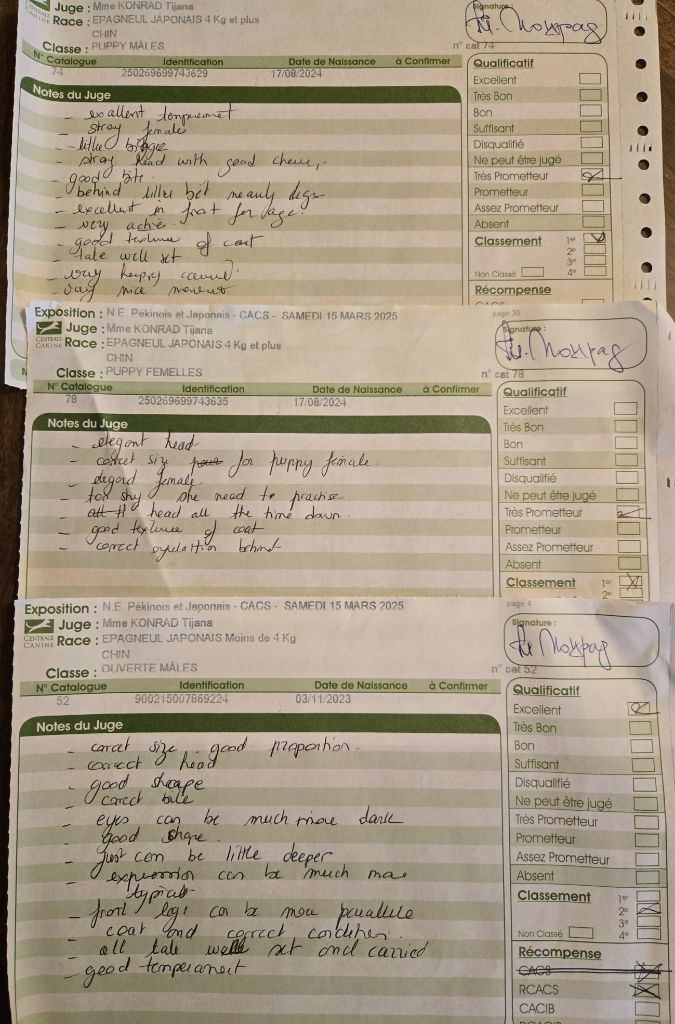 Juge : Mme KONRAD Tijana
Signature :
CENTRALE CANINE
Race : EPAGNEUL JAPONAIS 4 Kg et plus
CHIN
Classe : PUPPY MÂLES
n° cat 74
N° Catalogue Identification Date de Naissance à Confirmer
74 250269699743629 17/08/2024
Notes du Juge
- exallent temperumet
- strog female
- little bigge
- strog head with good cheue,
- good bite
- behind little bit nearly legs
- excellent in front for age.
- very active
- good texture of coat
- tale well set
- very happy carried
- vay nice movent
Qualificatif
Excellent
Très Bon
Bon
Suffisant
Disqualifié
Ne peut être jugé
Très Prometteur
Prometteur
Assez Prometteur
Absent
Classement 1er
2e
3e
Non Classé 4e
Récompense
CACS
Exposition : N.E. Pékinois et Japonais - CACS - SAMEDI 15 MARS 2025
page 10
Signature :
Juge : Mme KONRAD Tijana
CENTRALE CANINE
Race : EPAGNEUL JAPONAIS 4 Kg et plus
CHIN
Classe : PUPPY FEMELLES
n° cat 78
N° Catalogue Identification Date de Naissance à Confirmer
78 250269699743635 17/08/2024
Notes du Juge
- elegant head
- correct size for puppy female
- elegard female
- too shy she need to practise
- head all the time down.
- good texture of coat
- correct behind
Qualificatif
Excellent
Très Bon
Bon
Suffisant
Disqualifié
Ne peut être jugé
Très Prometteur
Prometteur
Assez Prometteur
Absent
Classement 1er
2e
Exposition : N.E. Pékinois et Japonais - CACS - SAMEDI 15 MARS 2025
page 4
Signature :
Juge : Mme KONRAD Tijana
CENTRALE CANINE
Race : EPAGNEUL JAPONAIS Moins de 4 Kg
CHIN
Classe : OUVERTE MÂLES
n° cat 52
N° Catalogue Identification Date de Naissance à Confirmer
52 900215007869224 03/11/2023
Notes du Juge
- correct size. good proportion.
- correct head
- good shape
- correct bite
- eyes can be much more dark
- good shape.
- just can be little deeper
- expression can be much more
typical
- front legs can be more parallele
- coat and correct condition.
- all tale well set and carried
- good temperament
Qualificatif
Excellent
Très Bon
Bon
Suffisant
Disqualifié
Ne peut être jugé
Très Prometteur
Prometteur
Assez Prometteur
Absent
Classement 1er
2e
3e
Non Classé 4e
Récompense
CACS
RCACS
CACIB